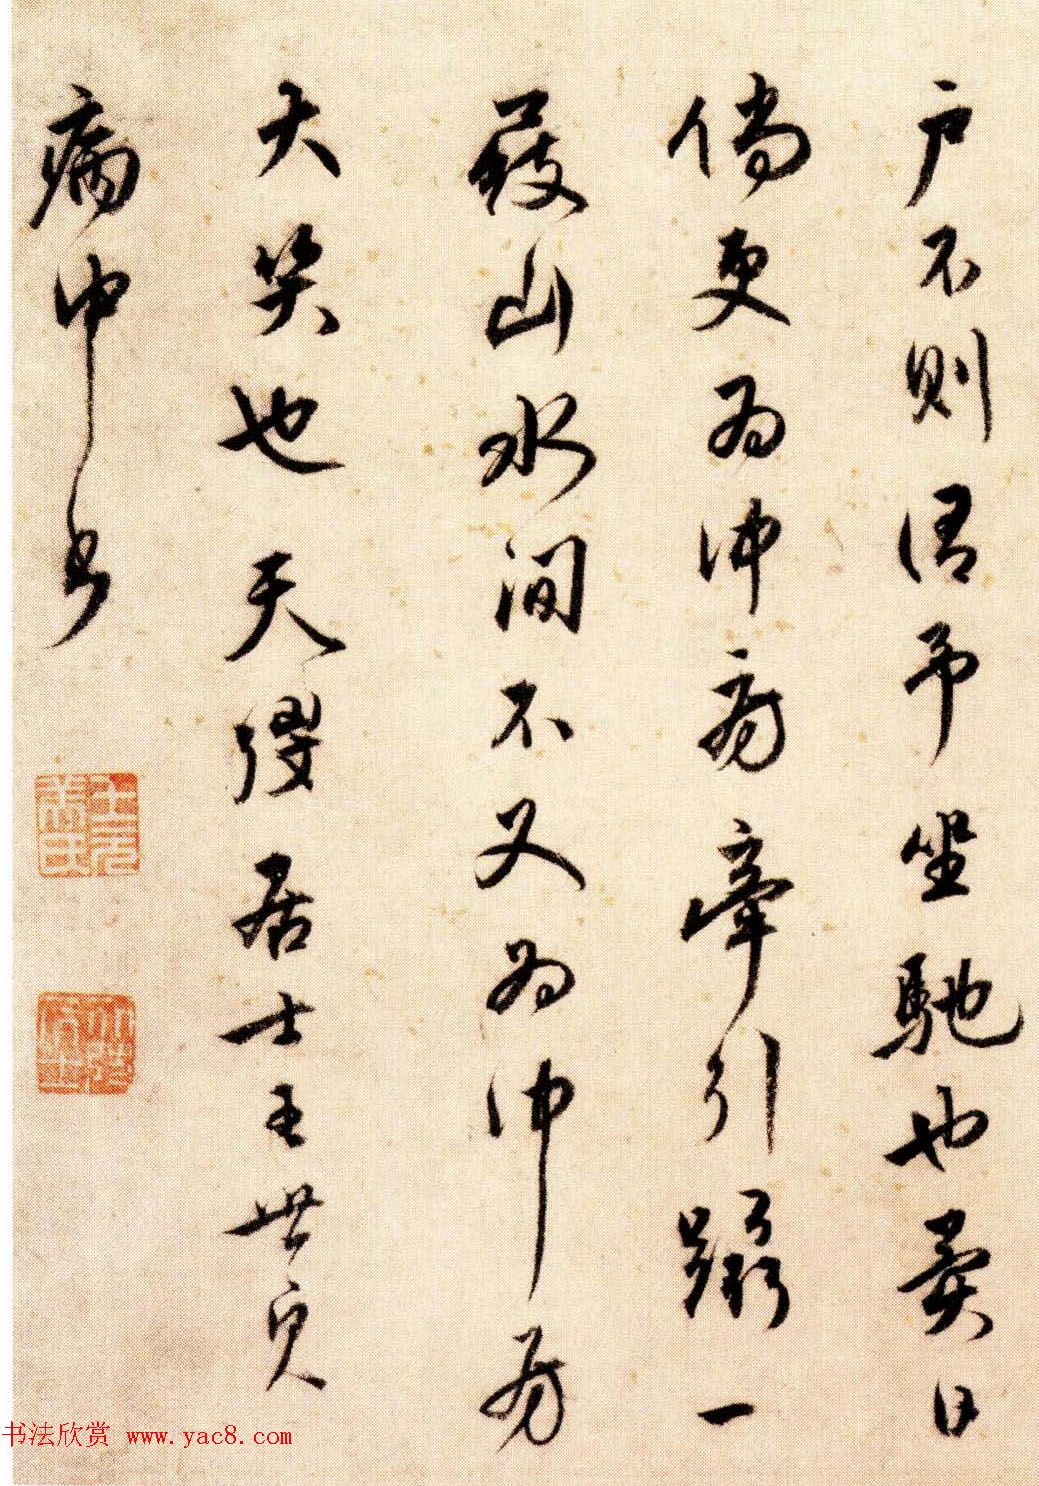 户不则谓予坐驰也异日
倘更为冲所牵引蹑一
屐山水间不又为冲所
大笑也天弢居士王世贞
病中书
书法欣赏 www.yac8.com